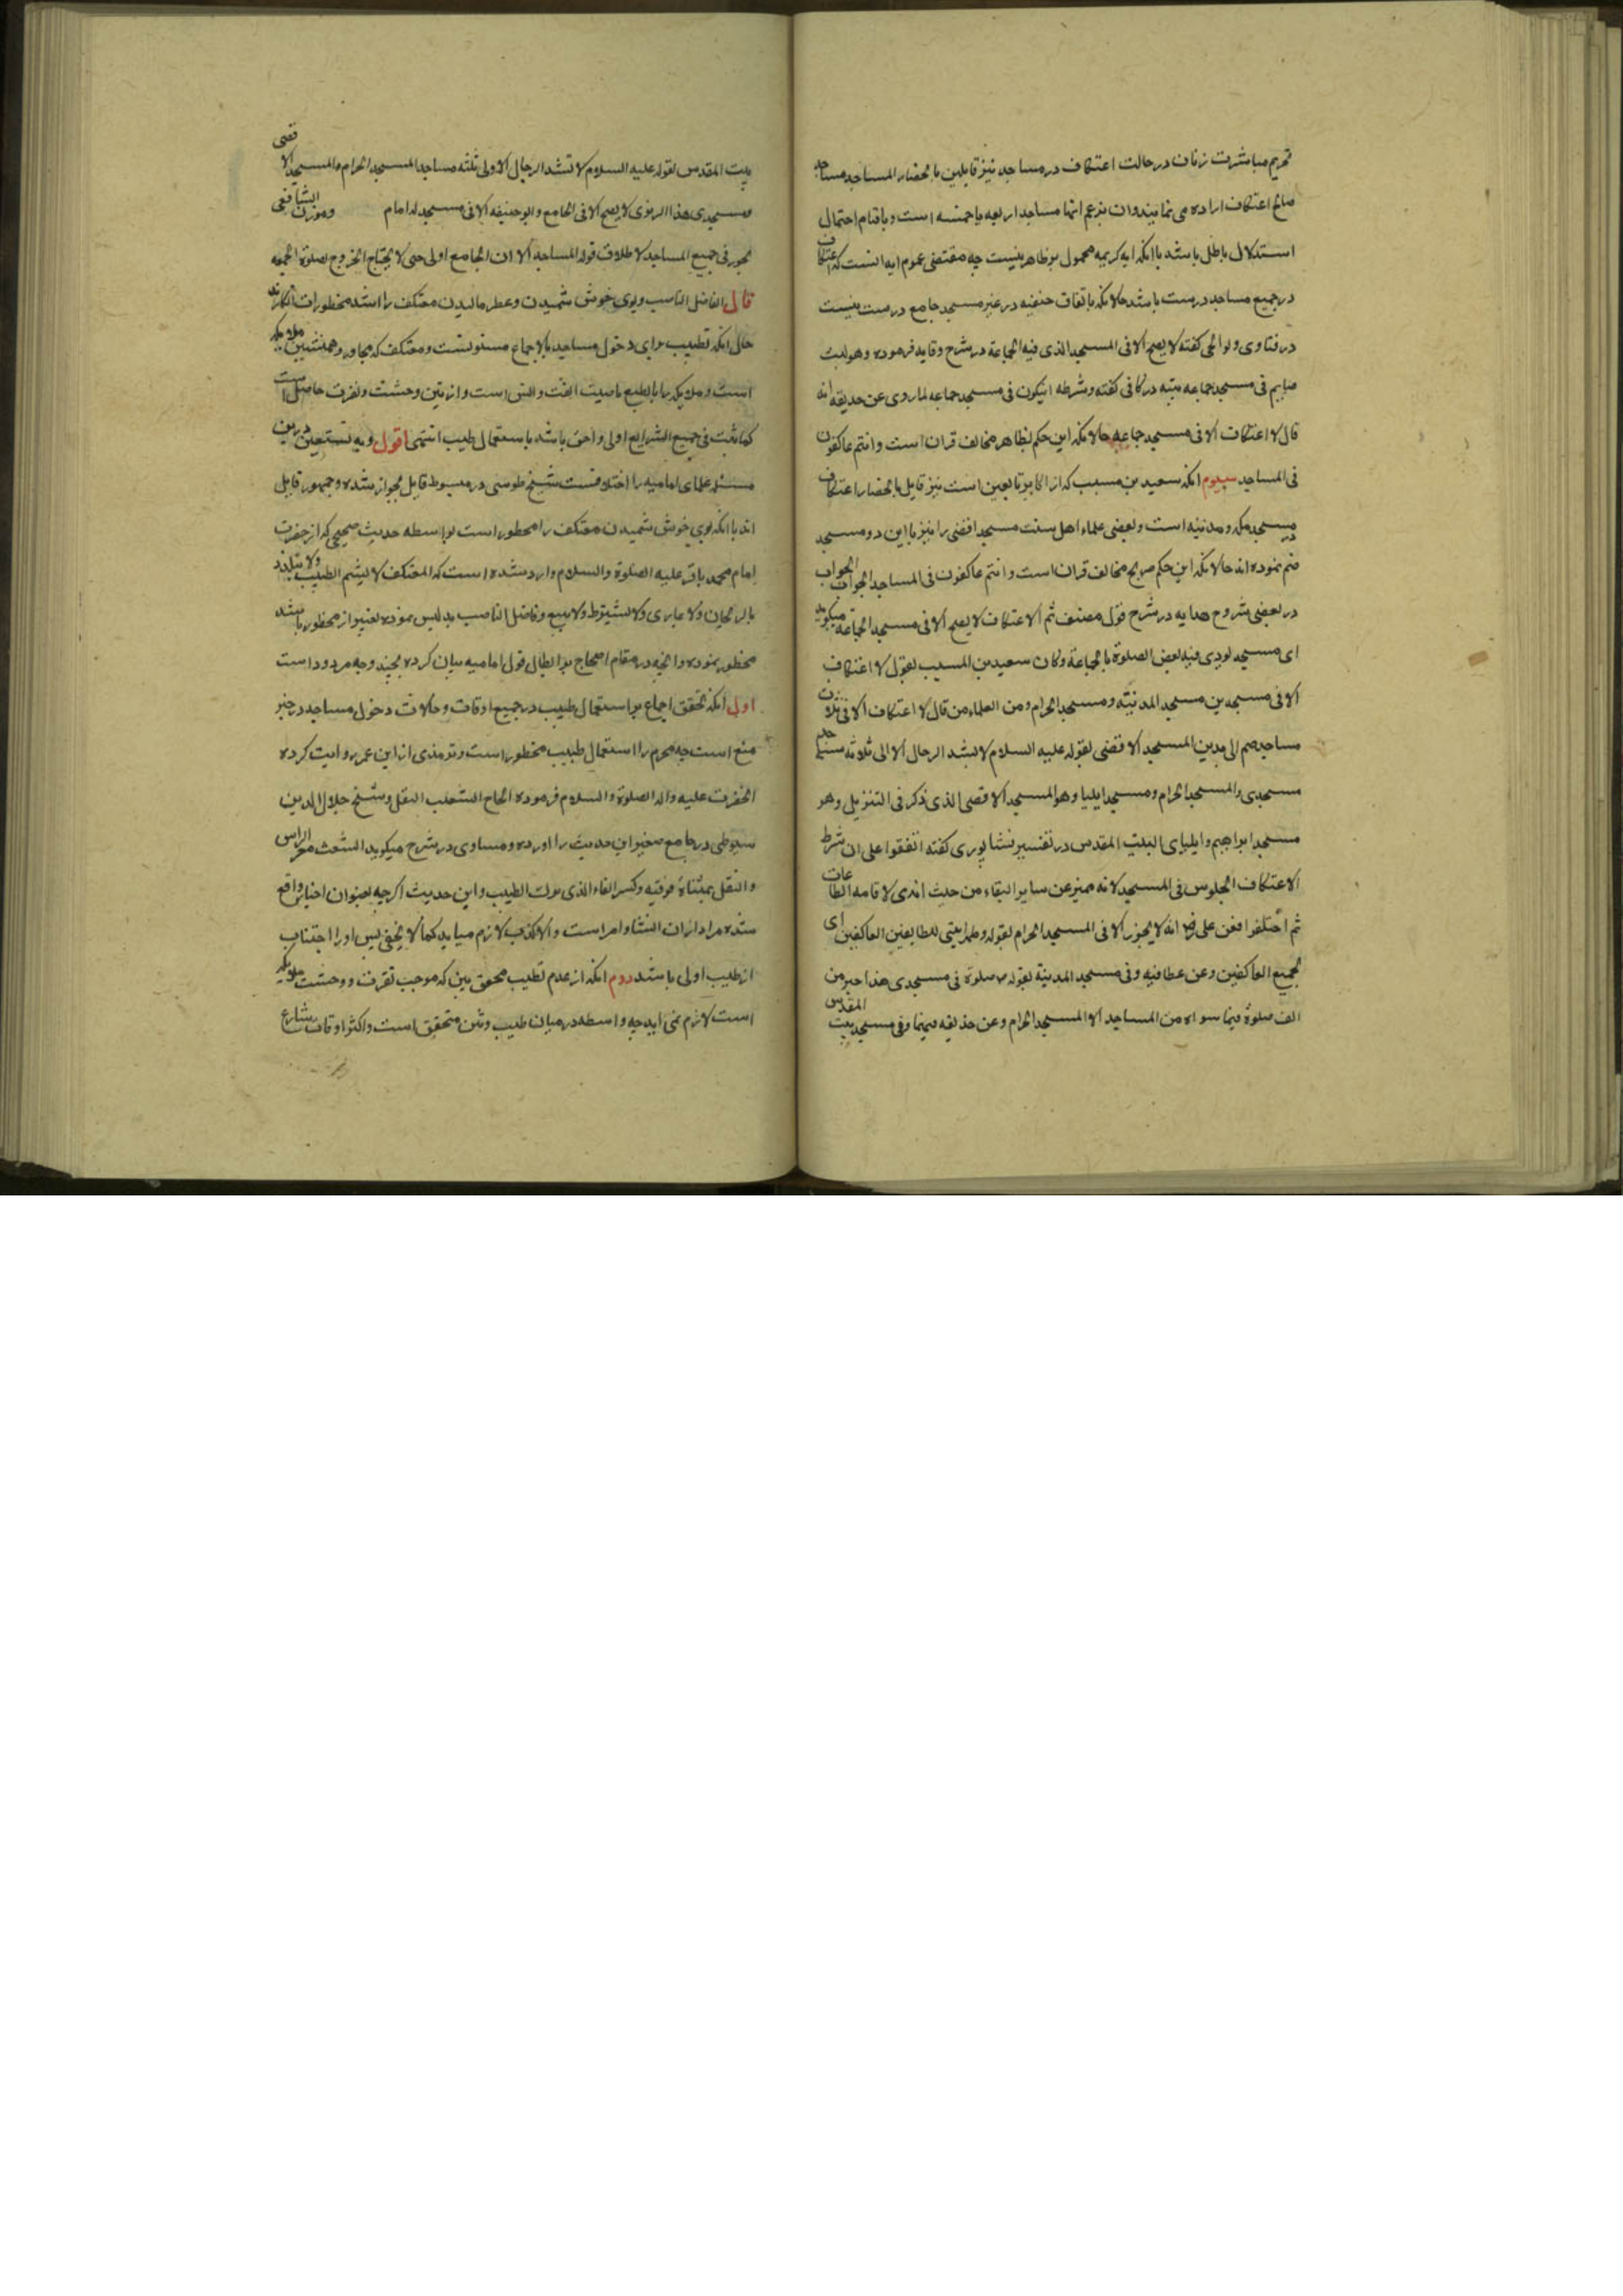 تحریم مباشرت زنان در حالت اعتکاف در مساجد نیز قایلین بانحضار المساجد مساجد
صالح اعتکاف اراده می نمایند وان بزعم انها مساجد اربعه یا خمسه است و باقیام احتمال
استدلال باطل باشد باانکه ایه کریمه محمول بر ظاهر نیست چه مقتضی عموم ایه انست که اعتکاف
در جمیع مساجد درست باشد حالانکه باتفاق حنفیه در غیر مسجد جامع درست نیست
در فتاوی ولوالجی کفته لا یصح الا فی المسجد الذی فیه الجماعة در شرح وقایه فرموده وهو لبث
صایم فی مسجد جماعه بنیه در کافی کفته وشرطه انیکون فی مسجد جماعه لما روی عن حذیفه انه
قال لا اعتکاف الا فی مسجد جماعه حالانکه این حکم بظاهر مخالف قران است وانتم عاکفون
فی المساجد سیوم انکه سعید بن مسیب که از اکابر تابعین است نیز قایل بانحضار اعتکاف
در مسجد مکه و مدنیه است وبعضی علماء اهل سنت مسجد اقضی را نیز بااین دو مسجد
ضم نموده اند حالانکه این حکم صریح مخالف قران است وانتم عاکفون فی المساجد الجواب الجواب
در بعضی شروح هدایه در شرح قول مصنف ثم الاعتکاف لا یصح الا فی مسجد الجماعة میکوید
ای مسجد یودی فیه بعض الصلوة بالجماعة وکان سعید بن المسیب یقول لا اعتکاف
الا فی مسجدین مسجد المدینة ومسجد الحرام ومن العلماء من قال لا اعتکاف الا فی ثلاث
مساجد ضم الی هذین المسجد الاقضی لقوله علیه السلام لا یشد الرحال الا الی ثلاثه مساجد
مسجدی والمسجد الحرام ومسجد ایلیا وهو المسجد الاقصی الذی ذکر فی التنزیل وهو
مسجد ابراهیم وایلیای البیت المقدس در تفسیر نیشابوری کفته اتفقوا علی ان شرط
الاعتکاف الجلوس فی المسجد لانه ممیز عن سایر البقاء من حیث انه لاقامه الطاعات
ثم اختلفوا فعن علی رض انه لا یجوز الا فی المسجد الحرام لقوله وطهرا بیتی للطایفین العاکفین ای
لجمیع العاکفین وعن عطا فیه وفی مسجد المدینة لقوله ص صلوة فی مسجدی هذا خیر من
الف صلوة فیما سواه من المساجد الا المسجد الحرام وعن حذیفه فیهما وفی مسجد بیت المقدس
بیت المقدس لقوله علیه السلام لا تشد الرحال الا ولی ثلثه مساجد المسجد الحرام والمسجد الاقصی
ومسجدی هذا الزهری لا یصح الا فی الجامع وابو حنیفه الا فی مسجد له امام وموذن الشافعی
یجوز فی جمیع المساجد لاطلاق قوله المساجد الا ان الجامع اولی حتی لا یحتاج الخروج لصلوة الجمعه
قال الفاضل الناصب وبوی خوش شمیدن وعطر مالیدن معتکف را اشد محظورات انکارند
حال انکه تطییب برای دخول مساجد بالاجماع مسنونست ومعتکف که مجاور وهمنشین ملایکه
است وملایکه را بالطبع باطیب الفت وانس است واز نتن وحشت ونفرت حاصل است
کما ثبت فی جمیع الشرایع اولی واحق باشد باستعمال طیب انتهی اقول وبه نستعین درین
مسئله علمای امامیه را اختلافست شیخ طوسی در مبسوط قایل بجواز شده وجمهور قایل
اند باانکه بوی خوش شمیدن معتکف را محظور است بواسطه حدیث صحیحی که از حضرت
امام محمد باقر علیه الصلوة والسلام وارد شده است که المعتکف لا یشم الطیب ولا یتلذذ
بالریحان ولا یماری ولا یشتری ولا یبیع وفاضل الناصب بدلیس نموده تعبیر از محظور باشد
محظور نموده وانچه در مقام احتجاج بر ابطال قول امامیه بیان کرده بچند وجه مردود است
اول انکه تحقق اجماع بر استعمال طیب در جمیع اوقات وحالات دخول مساجد در حیز
منع است چه محرم را استعمال طیب محظور است وترمذی از ابن عمر روایت کرده
انحضرت علیه واله الصلوة والسلام فرموده الحاج الشعث التفل وشیخ جلال الدین
سیوطی در جامع صغیر این حدیث را اورده ومناوی در شرح میکوید الشعث مغبر الراس
والتفل بمثناة فوقیه وکسر الفاء الذی ترک الطیب واین حدیث اکرچه بعنوان اخبار واقع
شده مراد از ان انشا وامر است والا کذب لازم میاید کما لا یخفی پس اورا اجتناب
از طیب اولی باشد دوم انکه از عدم تطیب تحقق نتن که موجب نفرت ووحشت ملایکه
است لازم نمی اید چه واسطه در میان طیب ونتن متحقق است واکثر اوقات شارع